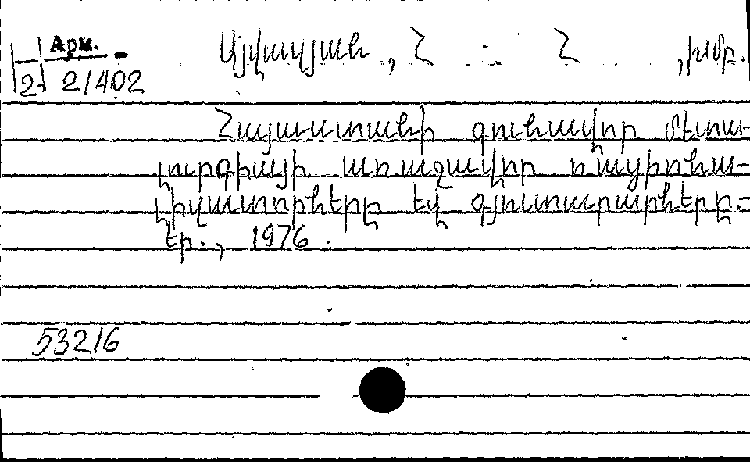 Арм.
2 - 2/402
Այվազյան, Հ ... Հ ... , խմբ.
Հայաստանի գունավոր մետա-
լուրգիայի առաջավոր ռացիոնա-
լիզատորները եվ գյուտարարները.-
Եր., 1976.
53216